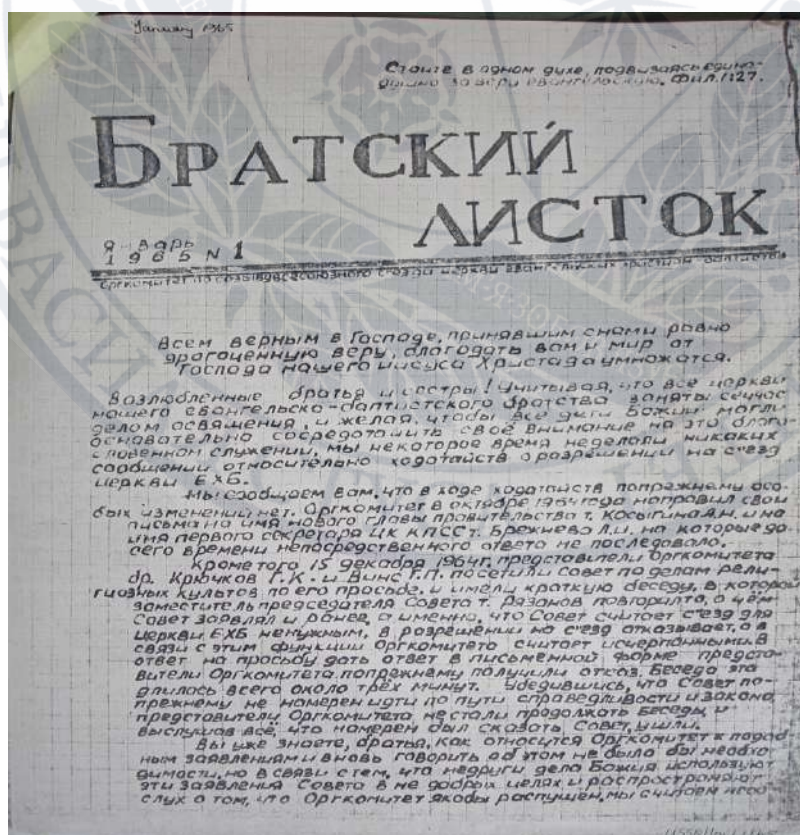 January 1965
Стойте в одном духе, подвизаясь едино-
душно за веру евангельскую. Фил. 1:27.
БРАТСКИЙ
ЛИСТОК
Январь
1965 N 1
Оргкомитет по созыву всесоюзного съезда церкви евангельских христиан-баптистов
Всем верным в Господе, принявшим с нами равно
драгоценную веру, благодать вам и мир от
Господа нашего Иисуса Христа да умножатся.
Возлюбленные братья и сестры! Учитывая, что все церкви
нашего евангельско-баптистского братства заняты сейчас
делом освящения, и желая, чтобы все дети Божии могли
основательно сосредоточить своё внимание на это благо-
словенном служении, мы некоторое время не делали никаких
сообщений относительно ходатайств о разрешении на с"езд
церкви ЕХБ.
Мы сообщаем Вам, что в ходе ходатайств попрежнему осо-
бых изменений нет. Оргкомитет в октябре 1964 года направил свои
письма на имя нового главы правительства т. Косыгина А.Н. и на
имя первого секретаря ЦК КПСС т. Брежнева Л.И., на которые до
сего времени непосредственного ответа не последовало.
Кроме того 15 декабря 1964г. представители Оргкомитета
бр. Крючков Г.К. и Винс Г.П. посетили Совет по делам рели-
гиозных культов по его просьбе, и имели краткую беседу, в которой
заместитель председателя Совета т. Рязанов повторил то, о чём
Совет заявлял и ранее, а именно, что Совет считает с"езд для
церкви ЕХБ ненужным, в разрешении на с"езд отказывает, а в
связи с этим функции Оргкомитета считает исчерпанными. В
ответ на просьбу дать ответ в письменной форме предста-
вители Оргкомитета попрежнему получили отказ. Беседа эта
длилась всего около трёх минут. Убедившись, что Совет по-
прежнему не намерен идти по пути справедливости и закона,
представители Оргкомитета не стали продолжать беседы и
выслушав всё, что намерен был сказать Совет, ушли.
Вы уже знаете, братья, как относится Оргкомитет к подоб-
ным заявлениям и вновь говорить об этом не было бы необхо-
димости, но в связи с тем, что недруги дела Божия используют
эти заявления Совета в не добрых целях и распространяют
слух о том, что Оргкомитет якобы распущен, мы считаем необ